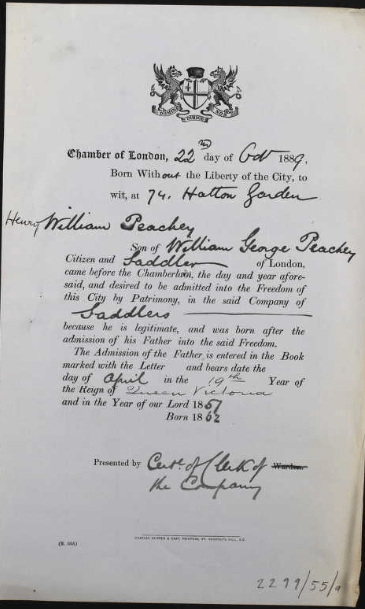 Chamber of London, 22nd day of Oct 1889,
Born Without the Liberty of the City, to
wit, at 74, Hatton Garden
Henry William Peachey
Son of William George Peachey
Citizen and Saddler of London,
came before the Chamberlain, the day and year afore-
said, and desired to be admitted into the Freedom of
this City by Patrimony, in the said Company of
Saddlers
because he is legitimate, and was born after the
admission of his Father into the said Freedom.
The Admission of the Father is entered in the Book
marked with the Letter and bears date the
day of April in the 19th Year of
the Reign of Queen Victoria
and in the Year of our Lord 1857
Born 1862
Presented by Cert. of Clerk of Warden.
the Company
2299/55/a